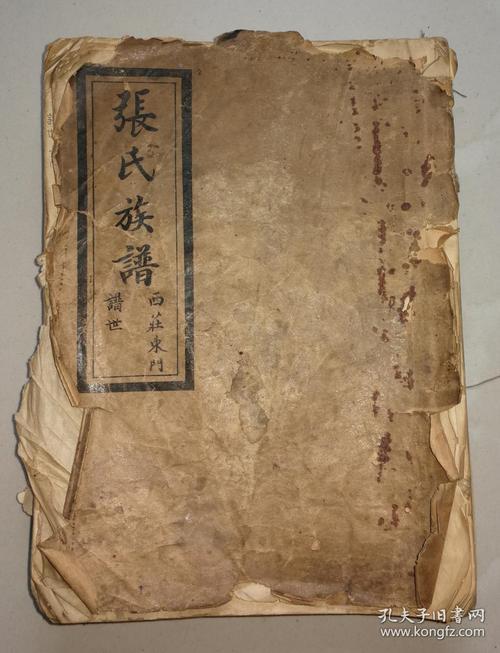 張氏族譜
西莊東門
譜世
孔夫子旧书网
www.kongfz.com